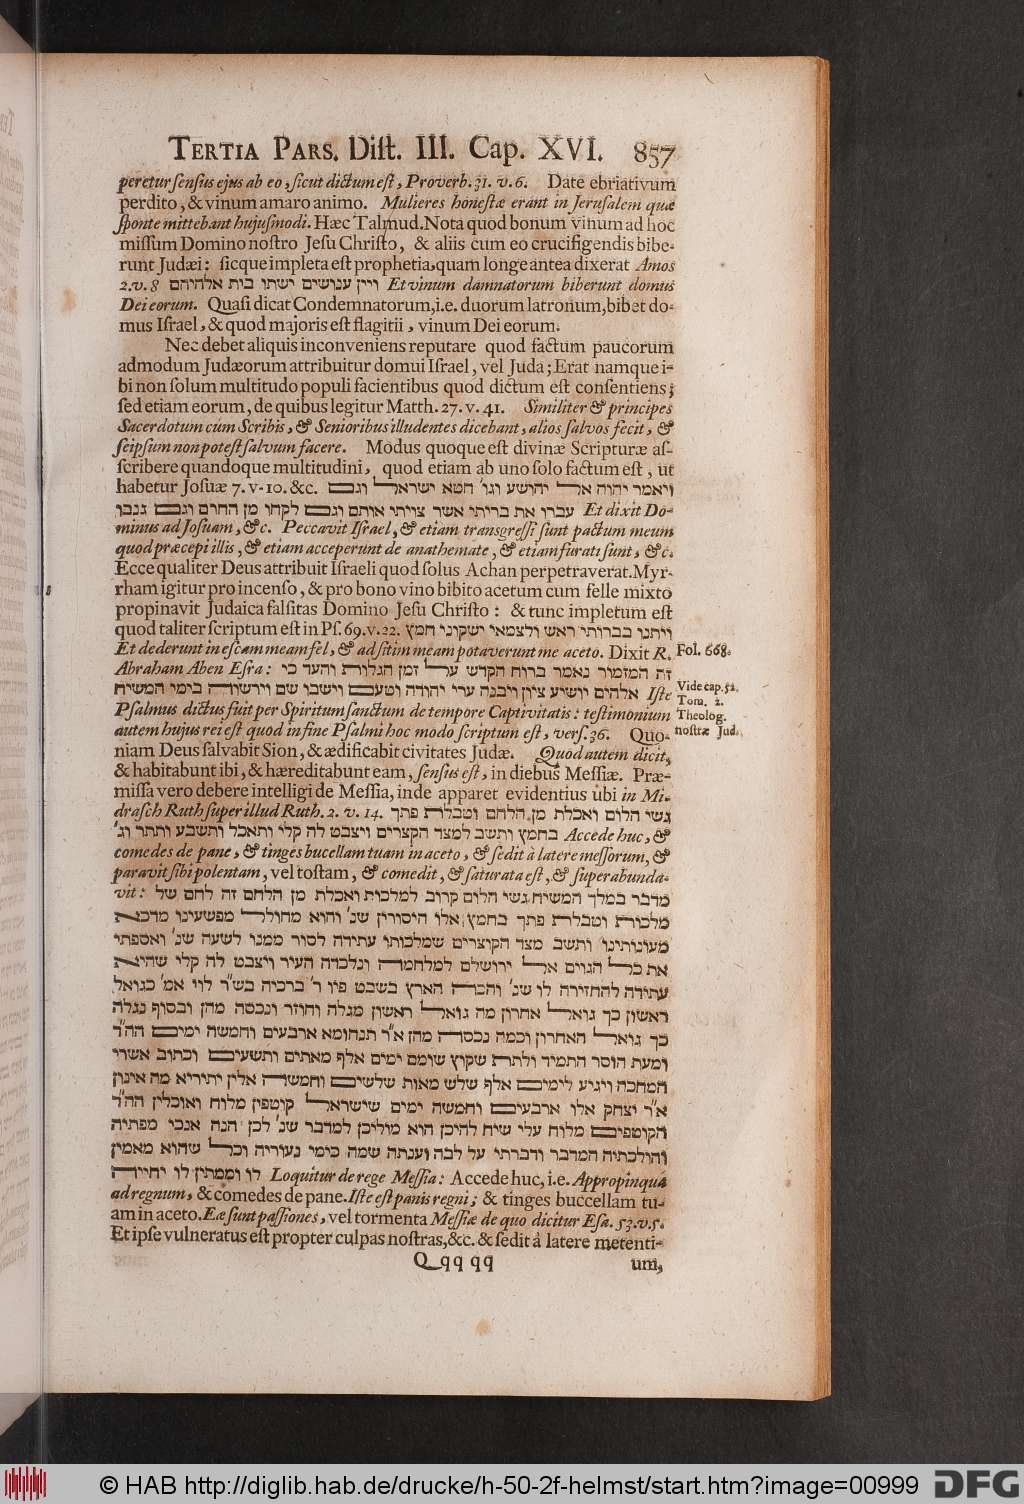 TERTIA PARS. Diſt. III. Cap. XVI. 857
peretur ſenſus ejus ab eo, ſicut dictum eſt, Proverb. 31. v. 6. Date ebriativum
perdito, & vinum amaro animo. Mulieres honeſtæ erant in Jeruſalem quæ
ſponte mittebant hujuſmodi. Hæc Talmud. Nota quod bonum vinum ad hoc
miſſum Domino noſtro Jeſu Chriſto, & aliis cum eo crucifigendis bibe-
runt Judæi: ſicque impleta eſt prophetia, quam longe antea dixerat Amos
2. v. 8 ויין ענושים ישתו בית אלהיהם Et vinum damnatorum biberunt domus
Dei eorum. Quaſi dicat Condemnatorum, i.e. duorum latronum, bibet do-
mus Iſrael, & quod majoris eſt flagitii, vinum Dei eorum.
Nec debet aliquis inconveniens reputare quod factum paucorum
admodum Judæorum attribuitur domui Iſrael, vel Juda; Erat namque i-
bi non ſolum multitudo populi facientibus quod dictum eſt conſentiens;
ſed etiam eorum, de quibus legitur Matth. 27. v. 41. Similiter & principes
Sacerdotum cum Scribis, & Senioribus illudentes dicebant, alios ſalvos fecit, &
ſeipſum non poteſt ſalvum facere. Modus quoque eſt divinæ Scripturæ aſ-
ſcribere quandoque multitudini, quod etiam ab uno ſolo factum eſt, ut
habetur Joſuæ 7. v-10. &c. ויאמר יהוה אל יהושע וגו' חטא ישראל וגם
עברו את בריתי אשר צויתי אותם וגם לקחו מן החרם וגם גנבו Et dixit Do-
minus ad Joſuam, &c. Peccavit Iſrael, & etiam transgreſſi ſunt pactum meum
quod præcepi illis, & etiam acceperunt de anathemate, & etiam furati sunt, & c.
Ecce qualiter Deus attribuit Iſraeli quod ſolus Achan perpetraverat. Myr-
rham igitur pro incenſo, & pro bono vino bibito acetum cum felle mixto
propinavit Judaica falſitas Domino Jeſu Chriſto: & tunc impletum eſt
quod taliter ſcriptum eſt in Pſ. 69. v. 22. ויתנו בברותי ראש ולצמאי ישקוני חמץ
Et dederunt in eſcam meam fel, & ad ſitim meam potaverunt me aceto. Dixit R. Fol. 668.
Abraham Aben Eſra: זה המזמור נאמר ברוח הקדש על זמן הגלות והעד כי
אלהים יושיע ציון ויבנה ערי יהודה וטעם וישבו שם וירשוה בימי המשיח Iſte
Vide cap. 52.
Tom. 2.
Theolog.
noſtræ Jud.
Pſalmus dictus fuit per Spiritum ſanctum de tempore Captivitatis: teſtimonium
autem hujus rei eſt quod in fine Pſalmi hoc modo ſcriptum eſt, verſ. 36. Quo-
niam Deus ſalvabit Sion, & ædificabit civitates Judæ. Quod autem dicit,
& habitabunt ibi, & hæreditabunt eam, ſenſus eſt, in diebus Meſſiæ. Præ-
miſſa vero debere intelligi de Meſſia, inde apparet evidentius ubi in Mi-
draſch Ruth ſuper illud Ruth. 2. v. 14. גשי הלום ואכלת מן הלחם וטבלת פתך
בחמץ ותשב למצד הקצרים ויצבט לה קלי ותאכל ותשבע ותתר וג' Accede huc, &
comedes de pane, & tinges bucellam tuam in aceto, & ſedit à latere meſſorum, &
paravit ſibi polentam, vel toſtam, & comedit, & ſaturata eſt, & ſuperabunda-
vit: מדבר במלך המשיח גשי הלום קרוב למלכות ואכלת מן הלחם זה לחם של
מלכות וטבלת פתך בחמץ אלו היסורין שנ' והוא מחולל מפשעינו מדכא
מעונותינו ותשב מצד הקוצרים שמלכותו עתידה לסור ממנו לשעה שנ' ואספתי
את כל הגוים אל ירושלם למלחמה ונלכדה העיר ויצבט לה קלי שהיא
עתידה להחזירה לו שנ' והכה הארץ בשבט פיו ר' ברכיה בש"ר לוי אמ' כגואל
ראשון כך גואל אחרון מה גואל ראשון מגלה וחוזר ונכסה מהן ובסוף נגלה
כך גואל האחרון וכמה נכסה מהן א"ר תנחומא ארבעים וחמשה ימים הה"ד
ומעת הוסר התמיד ולתת שקוץ שומם ימים אלף מאתים ותשעים וכתוב אשרי
המחכה ויגיע לימים אלף שלש מאות שלשים וחמשה אלין יתיריא מה אינון
א"ר יצחק אלו ארבעים וחמשה ימים שישראל קוטפין מלוח ואוכלין הה"ד
הקוטפים מלוח עלי שיח להיכן הוא מוליכן למדבר שנ' לכן הנה אנכי מפתיה
והולכתיה המדבר ודברתי על לבה וענתה שמה כימי נעוריה וכל שהוא מאמין
לו וממתין לו יחיה Loquitur de rege Meſſia: Accede huc, i.e. Appropinqua
ad regnum, & comedes de pane. Iſte eſt panis regni; & tinges buccellam tu-
am in aceto. Eæ ſunt paſſiones, vel tormenta Meſſiæ de quo dicitur Eſa. 53. v. 5.
Et ipſe vulneratus eſt propter culpas noſtras, &c. & ſedit à latere metenti-
Qqq qq um,
© HAB http://diglib.hab.de/drucke/h-50-2f-helmst/start.htm?image=00999 DFG